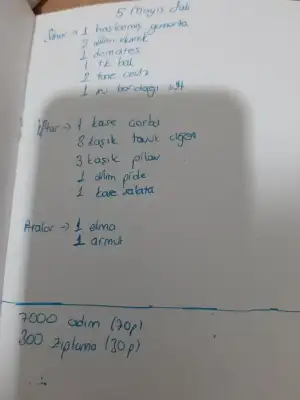 5 Mayıs Salı
Sahur → 1 haşlanmış yumurta
2 dilim ekmek
1 domates
1 tk bal
2 tane ceviz
1 su bardağı süt
İftar → 1 kase çorba
8 kaşık tavuk ciğer
3 kaşık pilav
1 dilim pide
1 kase salata
Aralar → 1 elma
1 armut
7000 adım (70p)
300 zıplama (30p)